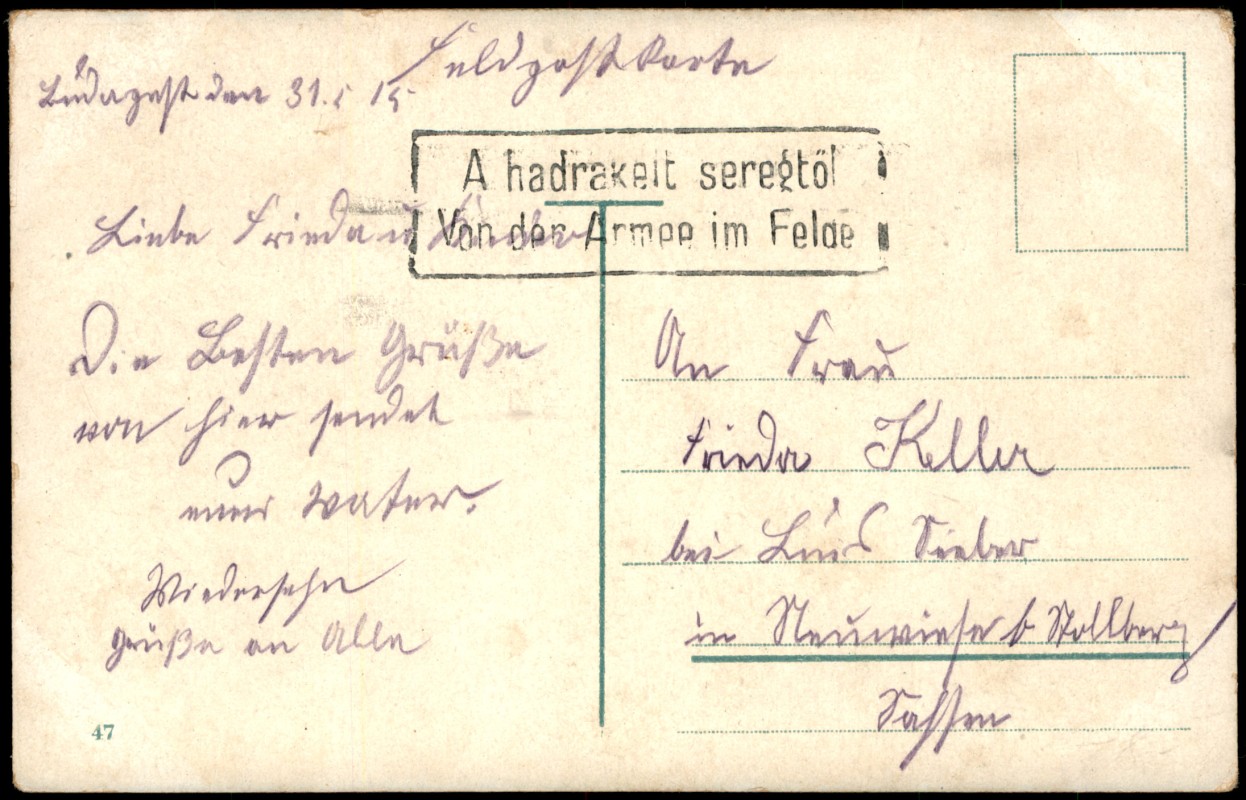 Feldpostkarte
Budapest den 31.5 15
A hadrakelt seregtől
Von der Armee im Felde
Liebe Frieda u
Die Besten Grüße
von hier sendet
euer Vater.
Wiedersehn
Grüße an Alle
47
An Frau
Frieda Keller
bei Luis Sieber
in Neuwiese b Stollberg
Sachsen